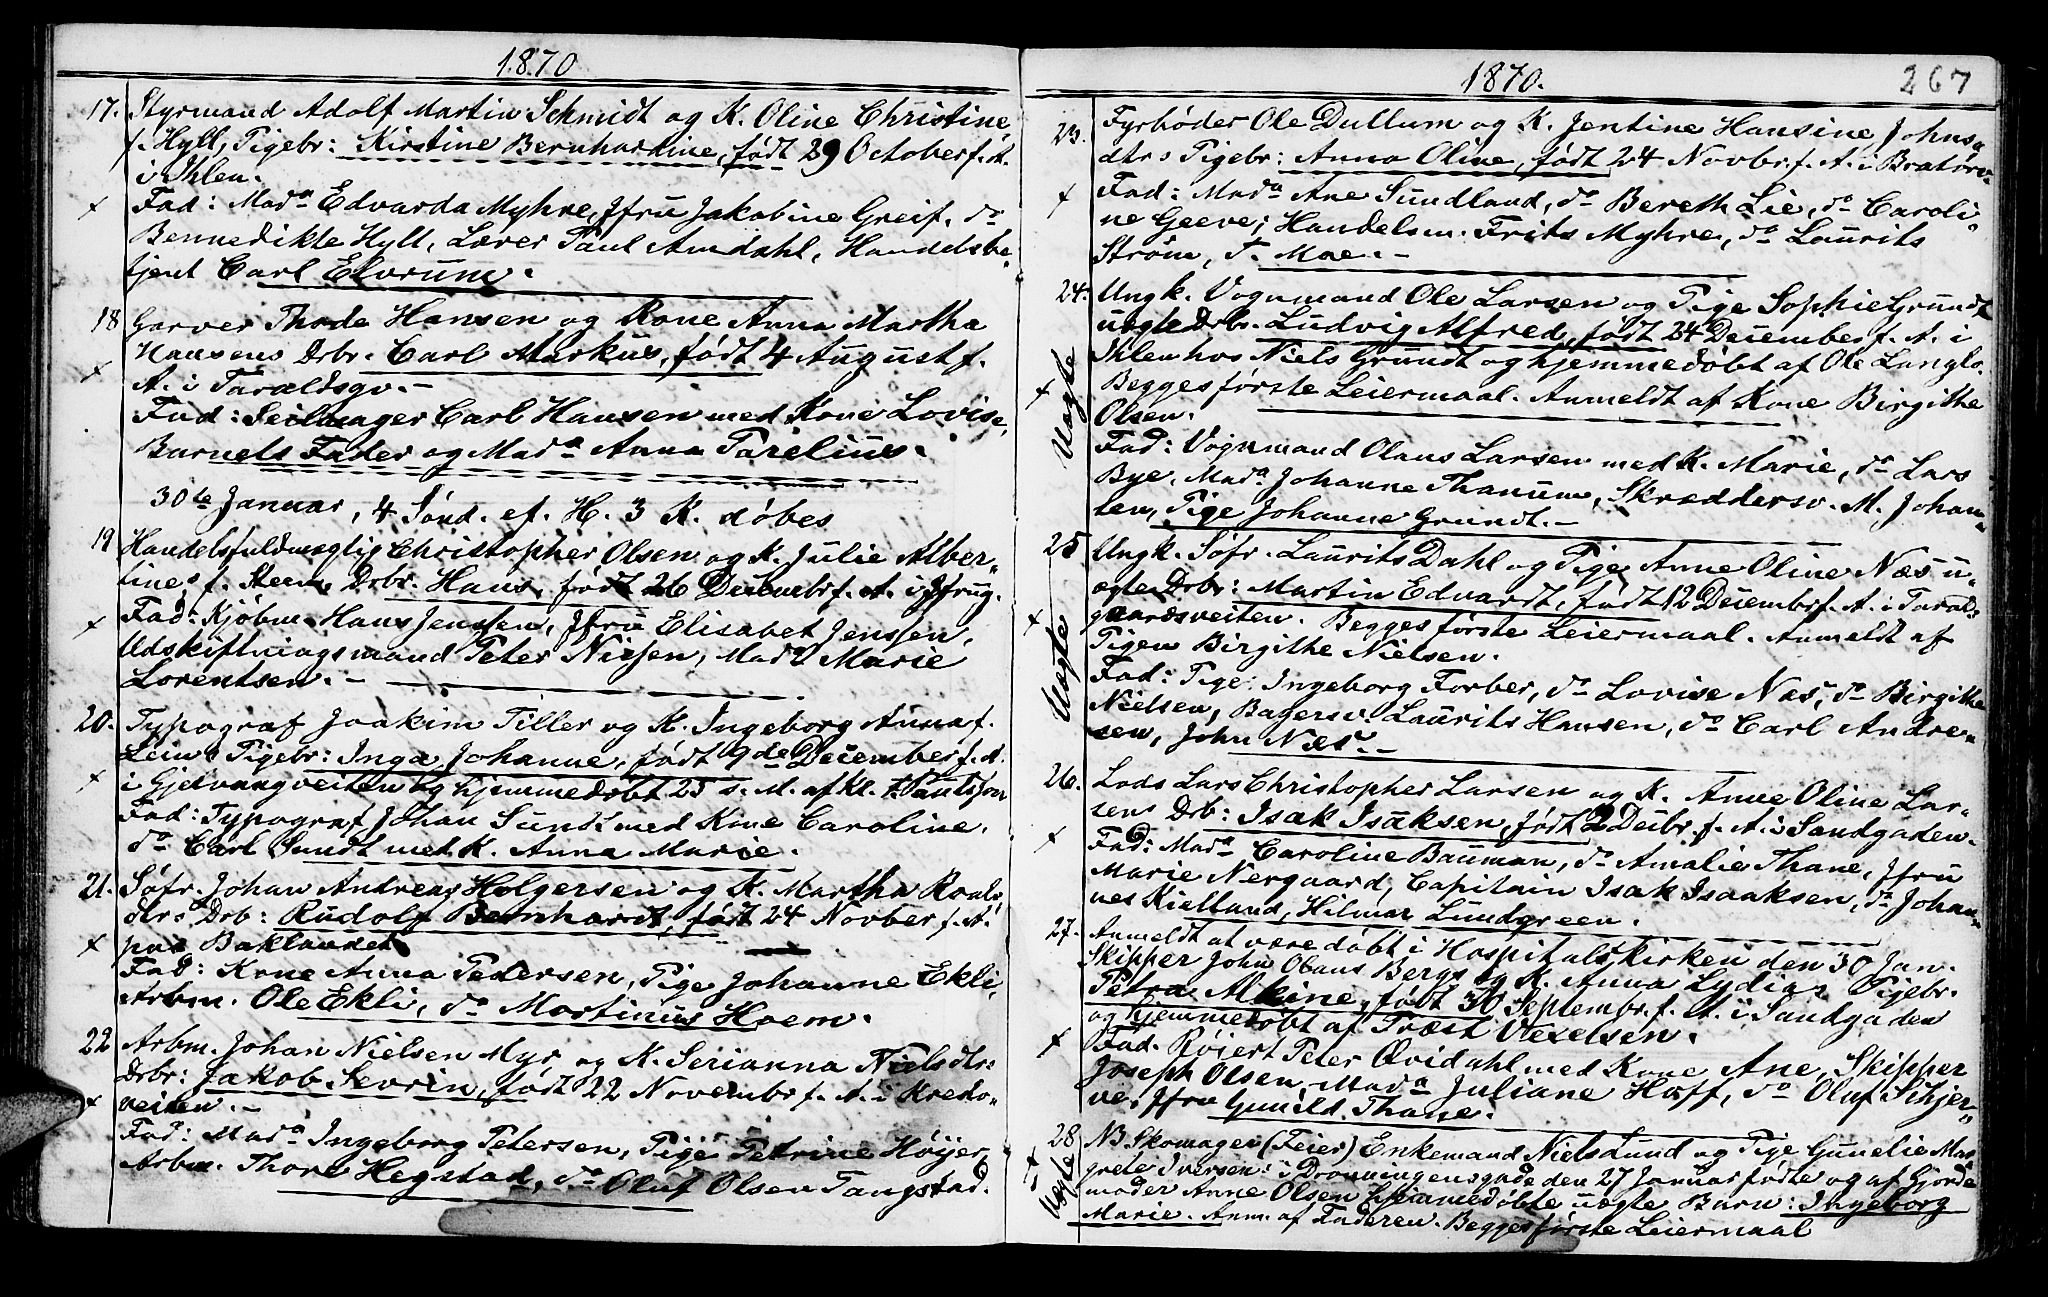 1870
17. Styrmand Adolf Martin Schmidt og K. Oline Christine,
f. Hyll, Pigebr: Kirstine Bernhardine, født 29 October f. A.
i Ihlen.
Fad: Mada Edvarda Myhre, Jfru Jakobine Greif, do
Bennedikte Hyll, Lærer Paul Amdahl, Handelsbe-
tjent Carl Elvrum.
18 Garver Thode Hansen og Kone Anna Martha
Hansens Drbr. Carl Markus, født 4 August f.
A. i Taraldsgv.-
Fad: Seilmager Carl Hansen med Kone Lovise,
Barnets Fader og Mada Anna Parelius.
30te Januar, 4 Sønd. ef. H. 3 K. døbes
19 Handelsfuldmægtig Christopher Olsen og K. Julie Alber-
tine, f. Steen, Drbr. Hans, født 26 Decembr f. A. i Jfrug.
Fad: Kjøbm. Hans Jenssen, Jfru Elisabet Jenssen,
Udskiftningsmand Peter Nissen, Mada Marie
Lorentsen.-
20. Typograf Joakim Tiller og K. Ingeborg Anna f.
Lein's Pigebr: Inga Johanne, født 9de December f. A.
i Gjelvangveiten og hjemmedøbt 25 s. M. af Kl.
Fad: Typograf Johan Sundt med Kone Caroline,
do Carl Sundt med K. Anna Marie.
21. Søfr. Johan Andreas Holgersen og K. Martha Roals-
dtrs Drb: Rudolf Bernhardt, født 24 Novber f. A.
paa Baklandet
Fad: Kone Anna Pedersen, Pige Johanne Ekli,
Arbm. Ole Ekli, do Martinus Hoem.
22 Arbm. Johan Nielsen Myr, og K. Serianna Nielsdtrs
Drbr: Jakob Sevrin, født 22 Novembr f. A. i Kredo-
veiten.-
Fad: Mada Ingeborg Petersen, Pige Petrine Høyer,
Arbm. Thore Hegstad, do Oluf Olsen Tangstad.
1870. 267
23. Fyrbøder Ole Dullum og K. Jentine Hansine, Johns-
dtrs Pigebr: Anna Oline, født 24 Novbr. f. A. i Bratørv.
Fad: Mada Ane Sundland, do Bereth Lie, do Caroli-
ne Geeve; Handelsm. Frits Myhre, do Laurits
Strøm, T. Moe.-
24. Ungk. Vognmand Ole Larsen og Pige Sophie Grundt
uægte Drbr. Ludvig Alfred, født 24 December f. A. i
Ihlen hos Niels Grundt og hjemmedøbt af Ole Langlo.
Uægte
Begges første Leiermaal. Anmeldt af Kone Birgithe
Olsen.
Fad: Vognmand Olaus Larsen med K. Marie, do Lars
Bye, Mada Johanne Thanum, Skræddersv. M. Johan-
sen, Pige Johanne Grundt.-
25 Ungk. Søfr. Laurits Dahl og Pige Anne Oline Næs u-
ægte Drbr: Martin Edvardt, født 12 Decembr f. A. i Tarald-
gaardsveiten. Begges første Leiermaal. Anmeldt af
Uægte
Pigen Birgithe Nielsen.
Fad: Pige: Ingeborg Forber, do Lovise Næs, do Birgithe
Nielsen, Bagersv. Laurits Hansen, do Carl Andre-
sen, John Næs.-
26. Lods Lars Christopher Larsen og K. Anne Oline Lar-
sens Drb: Isak Isaksen, født 2 Decbr. f. A. i Sandgaden.
Fad: Mada Caroline Bauman, do Amalie Thane, Jfru
Marie Nergaard, Capitain Isak Isaaksen, do Johan-
nes Kielland, Hilmar Lundgreen.
27. Anmeldt at være døbt i Hospitalskirken den 30 Jan.
Skipper John Olaus Bergs og K. Anna Lydias Pigebr.
Petra Alkine, født 30 Septembr. f. A. i Sandgaden
og hjemmedøbt af Præst Vexelsen.
Fad. Røiert Peter Qvidahl med Kone Ane, Skipper
Joseph Olsen, Mada Juliane Hoff, do Oluf Schjer-
ve, Jfru Gunild Thane.
28 NB Skomager (Feier) Enkemand Niels Lund og Pige Gunelie Mar-
grete Iversen: i Dronningensgade den 27 Januar fødte og af Gjorde-
Uægte
moder Anne Olsen hjemmedøbte uægte Barn: Ingeborg
Marie. Anm. af Faderen. Begges første Leiermaal